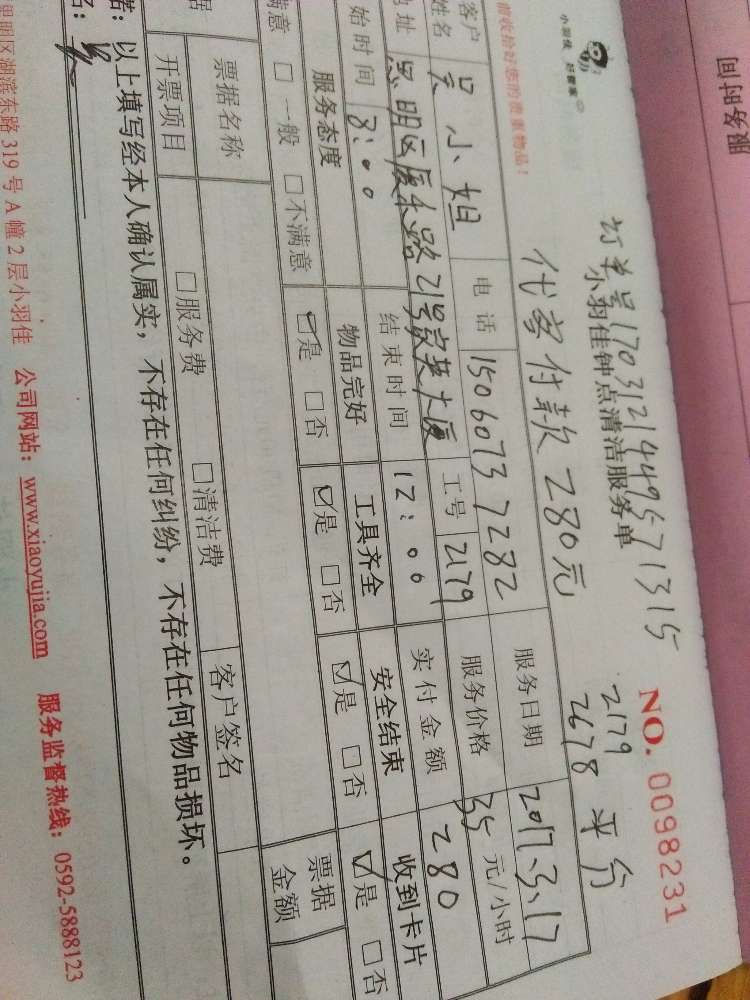 服务时间
小羽佳 好管家
订单号170312144957 1315
小羽佳钟点清洁服务单
NO. 0098231
2179
2678 平分
请收拾好您的贵重物品！
代劵付款280元
客户姓名 吴小姐 电话 15060737282 服务日期 2017.3.17
地址 思明区厦禾路21号 工号 2179 服务价格 35 元/小时
始时间 8:00 结束时间 12:00 实付金额 280
服务态度 物品完好 工具齐全 安全结束 收到卡片
满意 □一般 □不满意 ☑是 □否 ☑是 □否 ☑是 □否 ☑是 □否
票据名称 客户签名 票据金额
开票项目 □服务费 □清洁费
诺：以上填写经本人确认属实，不存在任何纠纷，不存在任何物品损坏。
名：
思明区湖滨东路 319 号 A 幢 2 层小羽佳 公司网站：www.xiaoyujia.com 服务监督热线：0592-5888123